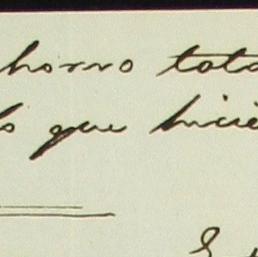 horro tota
lo que hicie